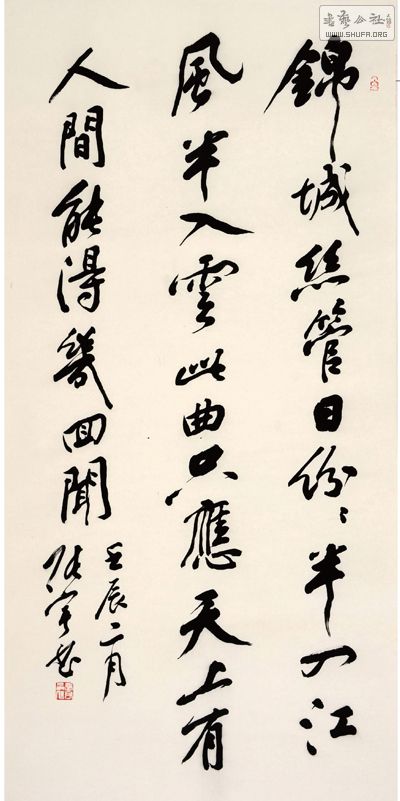 書藝公社
WWW.SHUFA.ORG
錦城絲管日紛〻半入江
風半入雲此曲只應天上有
人間能得幾回聞
壬辰二月